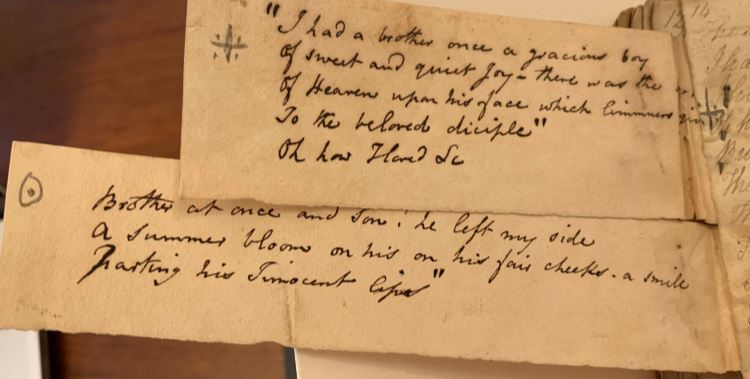 "I had a brother once a gracious boy
Of sweet and quiet Joy - there was the
Of Heaven upon his face which limmners
To the beloved diciple"
Oh how I loved &c
Brother at once and Son! he left my side
A summer bloom on his on his fair cheeks - a smile
Parting his Innocent lips"
13 14